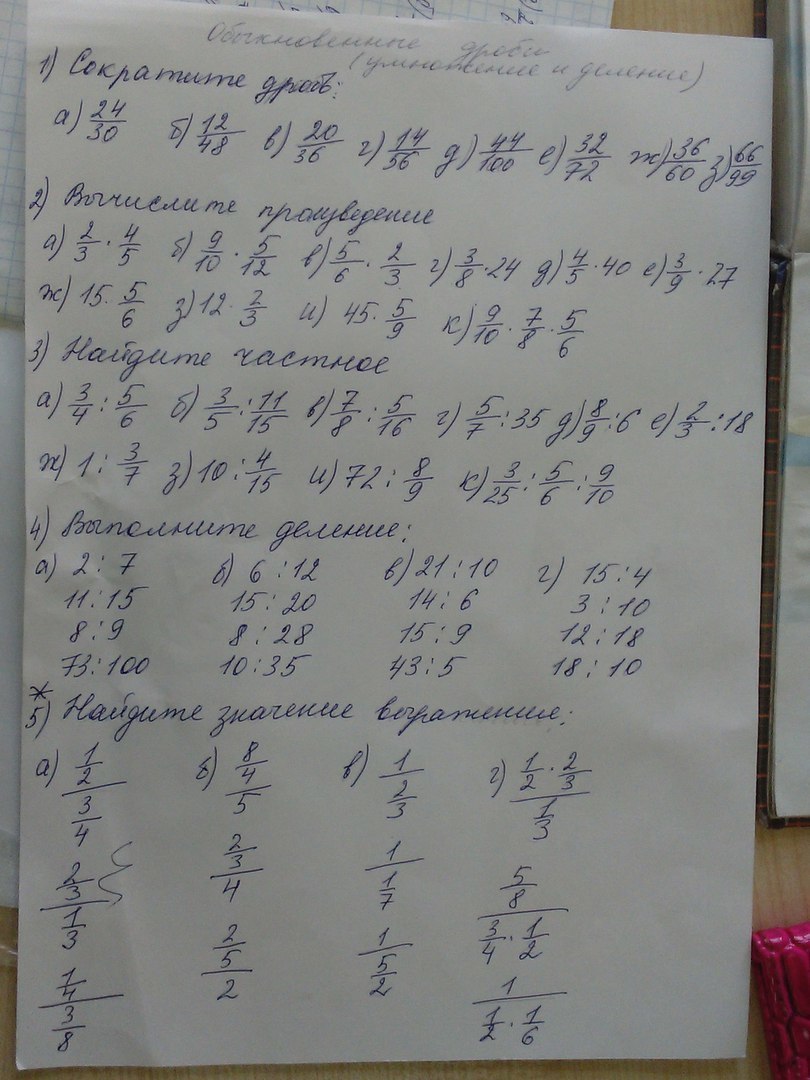 Обыкновенные дроби
(умножение и деление)
1) Сократите дробь:
а) 24/30 б) 12/48 в) 20/36 г) 14/56 д) 44/100 е) 32/72 ж) 36/60 з) 66/99
2) Вычислите произведение
а) 2/3 · 4/5 б) 9/10 · 5/12 в) 5/6 · 2/3 г) 3/8 · 24 д) 4/5 · 40 е) 3/9 · 27
ж) 15 · 5/6 з) 12 · 2/3 и) 45 · 5/9 к) 9/10 · 7/8 · 5/6
3) Найдите частное
а) 3/4 : 5/6 б) 3/5 : 11/15 в) 7/8 : 5/16 г) 5/7 : 35 д) 8/9 : 6 е) 2/3 : 18
ж) 1 : 3/7 з) 10 : 4/15 и) 72 : 8/9 к) 3/25 : 5/6 : 9/10
4) Выполните деление:
а) 2 : 7 б) 6 : 12 в) 21 : 10 г) 15 : 4
11 : 15 15 : 20 14 : 6 3 : 10
8 : 9 8 : 28 15 : 9 12 : 18
73 : 100 10 : 35 43 : 5 18 : 10
*
5) Найдите значение выражение:
а) (1/2)/(3/4) б) (8/4)/5 в) 1/(2/3) г) (1/2 · 2/3)/(1/3)
(2/3)/(1/3) (2/3)/4 1/(1/7) (5/8)/(3/4 · 1/2)
(1/4)/(3/8) (2/5)/2 1/(5/2) 1/(1/2 · 1/6)